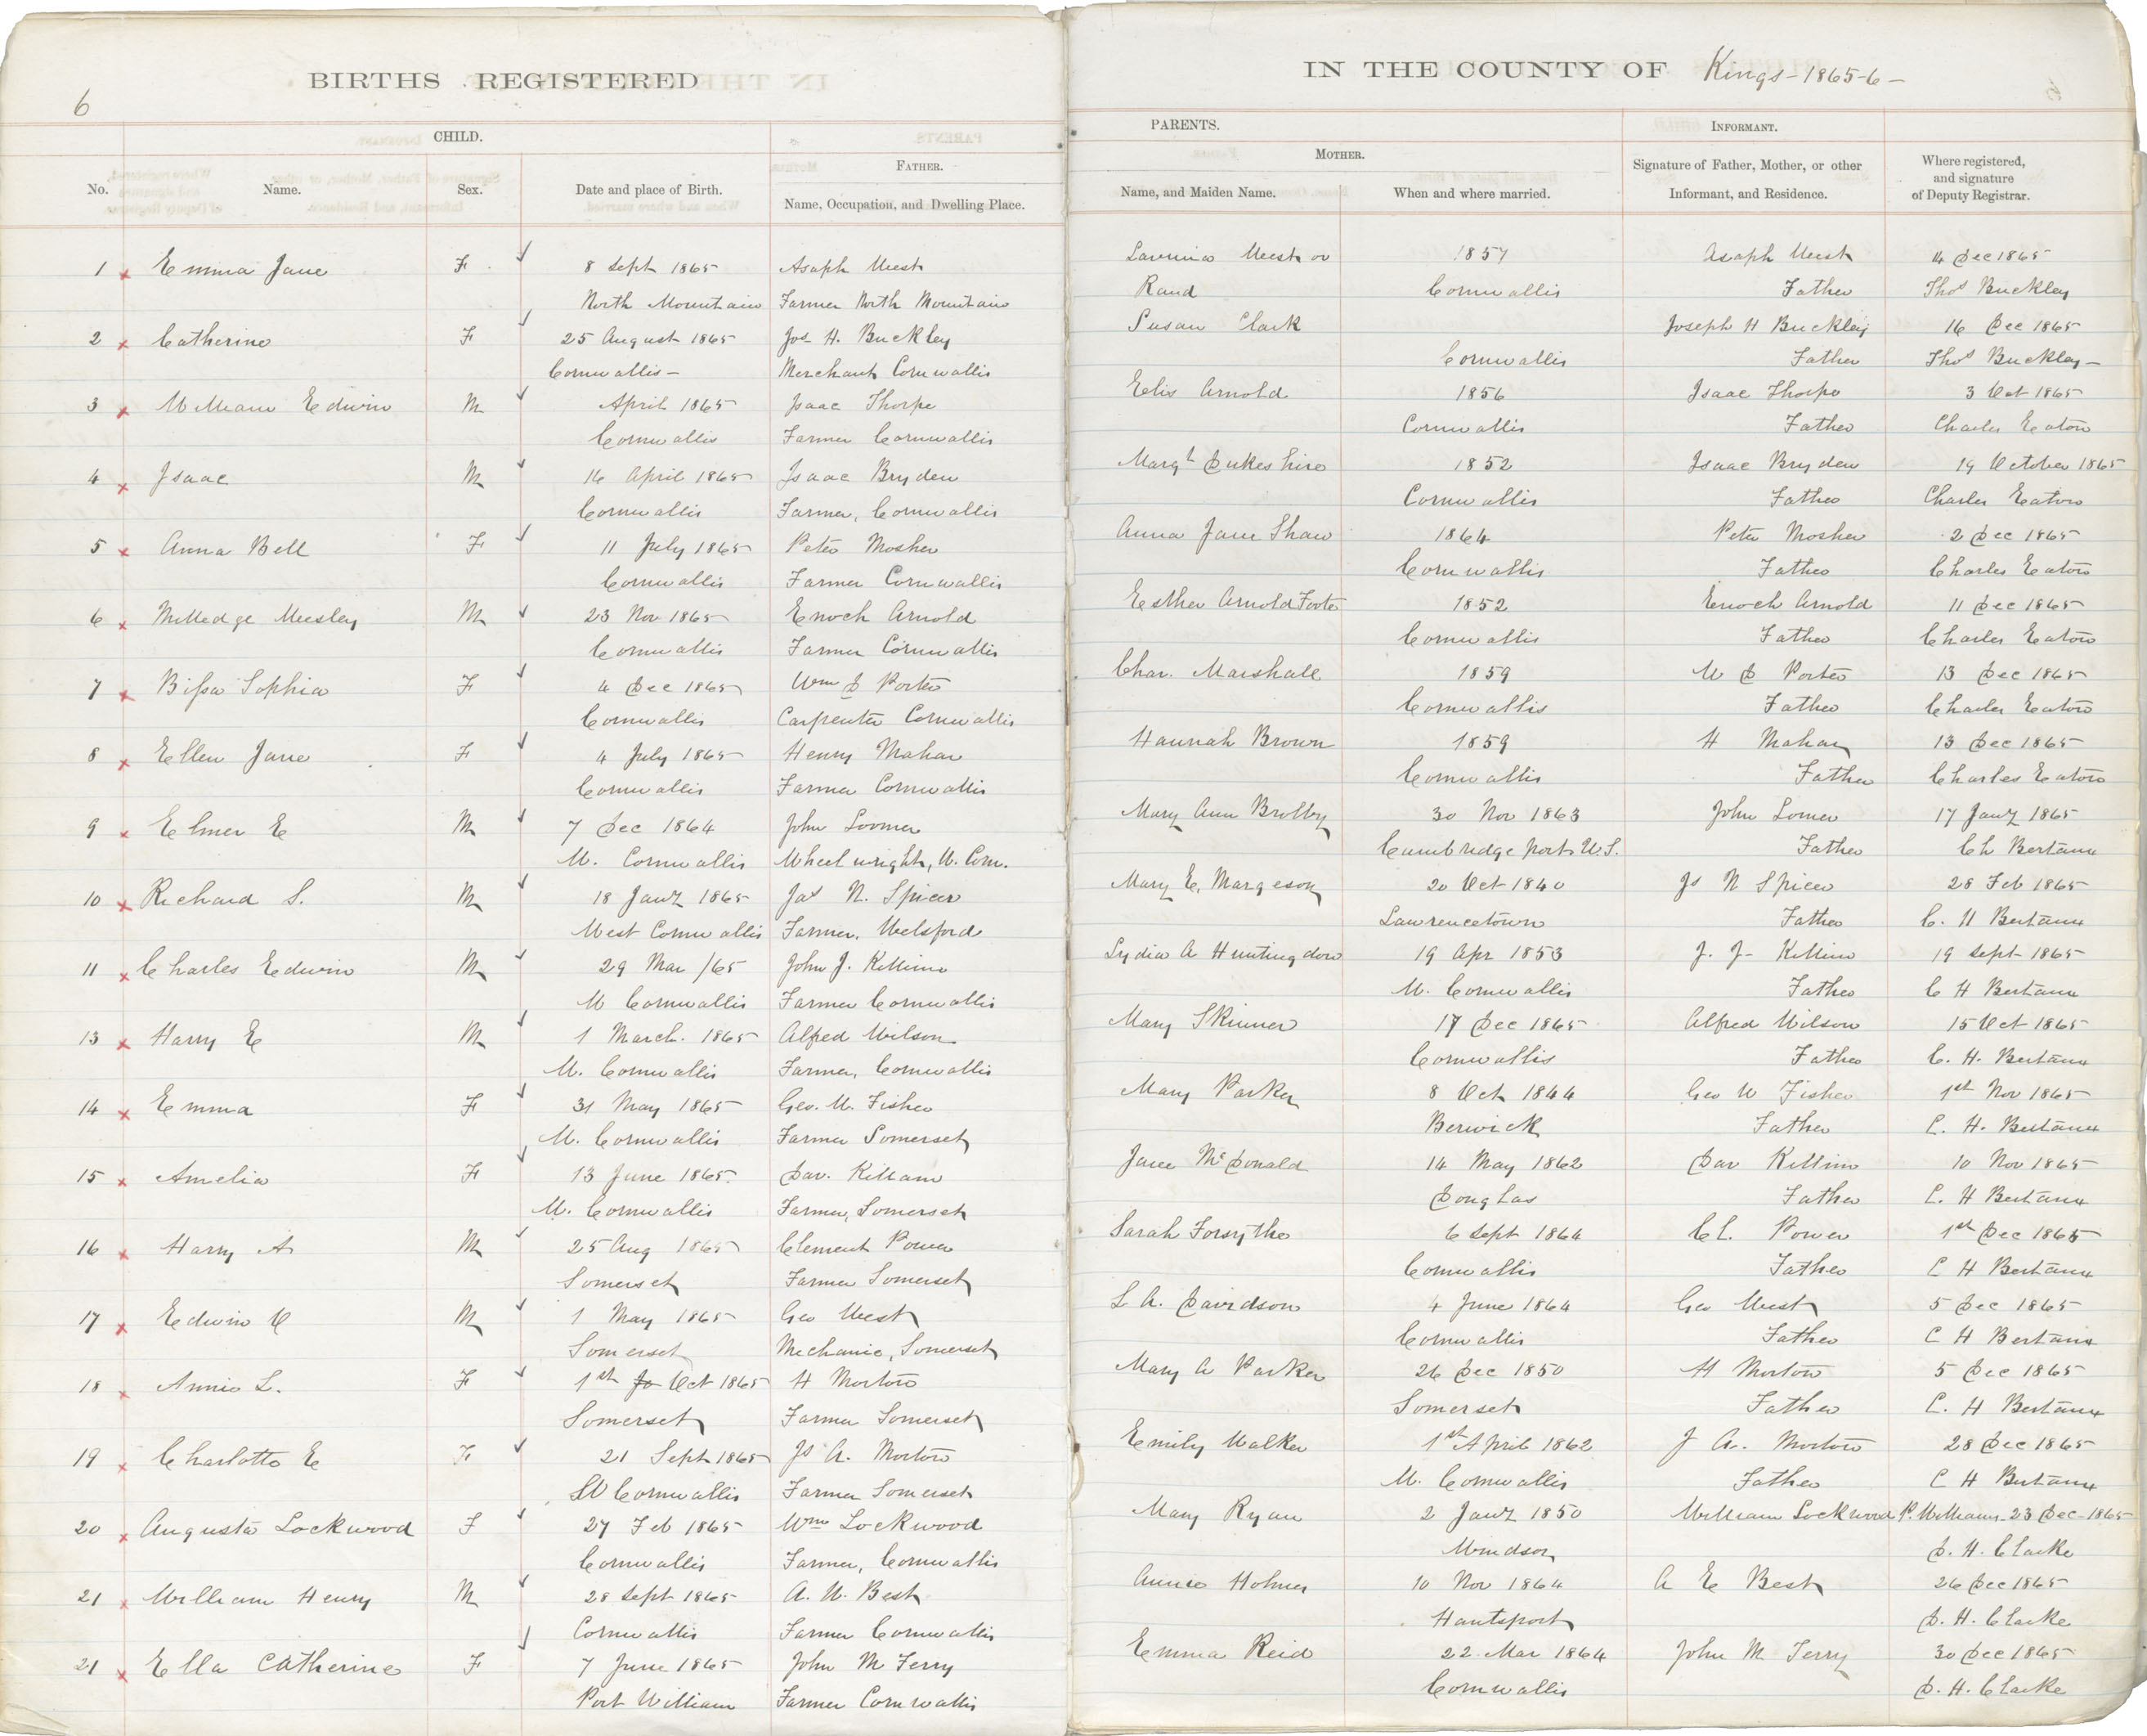 BIRTHS REGISTERED
IN THE COUNTY OF Kings-1865-6-
6
CHILD.
PARENTS.
INFORMANT.
FATHER.
MOTHER.
No.
Name.
Sex.
Date and place of Birth.
Name, Occupation, and Dwelling Place.
Name, and Maiden Name.
When and where married.
Signature of Father, Mother, or other
Informant, and Residence.
Where registered,
and signature
of Deputy Registrar.
1 Emma Jane F 8 Sept 1865 Asaph West Lavinia West or 1857 Asaph West 14 Dec 1865
North Mountain Farmer North Mountain Rand Cornwallis Father Thos Buckley
2 Catherine F 25 August 1865 Jos H. Buckley Susan Clark Joseph H Buckley 16 Dec 1865
Cornwallis- Merchant Cornwallis Cornwallis Father Thos Buckley-
3 William Edwin M April 1865 Isaac Thorpe Elis Arnold 1856 Isaac Thorpe 3 Oct 1865
Cornwallis Farmer Cornwallis Cornwallis Father Charles Eaton
4 Isaac M 14 April 1865 Isaac Bryden Margt Dukeshire 1852 Isaac Bryden 19 October 1865
Cornwallis Farmer, Cornwallis Cornwallis Father Charles Eaton
5 Anna Bell F 11 July 1865 Peter Mosher Anna Jane Shaw 1864 Peter Mosher 2 Dec 1865
Cornwallis Farmer Cornwallis Cornwallis Father Charles Eaton
6 Milledge Wesley M 23 Nov 1865 Enoch Arnold Esther Arnold Foote 1852 Enoch Arnold 11 Dec 1865
Cornwallis Farmer Cornwallis Cornwallis Father Charles Eaton
7 Sophia F 4 Dec 1865 Wm D Porter Char. Marshall 1859 W D Porter 13 Dec 1865
Cornwallis Carpenter Cornwallis Cornwallis Father Charles Eaton
8 Ellen Jane F 4 July 1865 Henry Mahar Hannah Brown 1859 H Mahar 13 Dec 1865
Cornwallis Farmer Cornwallis Cornwallis Father Charles Eaton
9 Elmer E M 7 Dec 1864 John Loomer Mary Ann 30 Nov 1863 John Lomer 17 Jany 1865
W. Cornwallis Wheelwright, W. Corn. Cambridge port U.S. Father Ch
10 Richard S. M 18 Jany 1865 Jas N. Spicer Mary E. Margeson 20 Oct 1840 Js N Spicer 28 Feb 1865
West Cornwallis Farmer, Welsford Lawrencetown Father C. H
11 Charles Edwin M 29 Mar /65 John J. Killim Lydia A Huntingdon 19 Apr 1853 J. J- Killim 19 Sept 1865
W Cornwallis Farmer Cornwallis W. Cornwallis Father C H
13 Harry E M 1 March. 1865 Alfred Wilson Mary Skinner 17 Dec 1865 Alfred Wilson 15 Oct 1865
W. Cornwallis Farmer, Cornwallis Cornwallis Father C. H.
14 Emma F 31 May 1865 Geo. W. Fisher Mary Parker 8 Oct 1844 Geo W Fisher 1st Nov 1865
W. Cornwallis Farmer Somerset Berwick Father C. H.
15 Amelia F 13 June 1865. Dav. Killam Jane McDonald 14 May 1862 Dav Killim 10 Nov 1865
W. Cornwallis Farmer, Somerset Douglas Father C. H
16 Harry A M 25 Aug 1865 Clement Power Sarah Forsythe 6 Sept 1864 Cl. Power 1st Dec 1865
Somerset Farmer Somerset Cornwallis Father C H
17 Edwin M 1 May 1865 Geo West L A. Davidson 4 June 1864 Geo West 5 Dec 1865
Somerset Mechanic, Somerset Cornwallis Father C H
18 Annie L. F 1st Ja Oct 1865 H Morton Mary A Parker 26 Dec 1850 H Morton 5 Dec 1865
Somerset Farmer Somerset Somerset Father C. H
19 Charlotte E F 21 Sept 1865 Js A. Morton Emily Walker 1st April 1862 J A. Morton 28 Dec 1865
W Cornwallis Farmer Somerset W. Cornwallis Father C H
20 Augusta Lockwood F 27 Feb 1865 Wm Lockwood Mary Ryan 2 Jany 1850 William Lockwood P. Williams. 23 Dec-1865
Cornwallis Farmer, Cornwallis Windsor D. H. Clarke
21 William Henry M 28 Sept 1865 A. W. Best Annie Holmes 10 Nov 1864 A E Best 26 Dec 1865
Cornwallis Farmer Cornwallis Hantsport D. H. Clarke
21 Ella Catherine F 7 June 1865 John M Terry Emma Reid 22. Mar 1864 John M Terry 30 Dec 1865
Port William Farmer Cornwallis Cornwallis D. H. Clarke